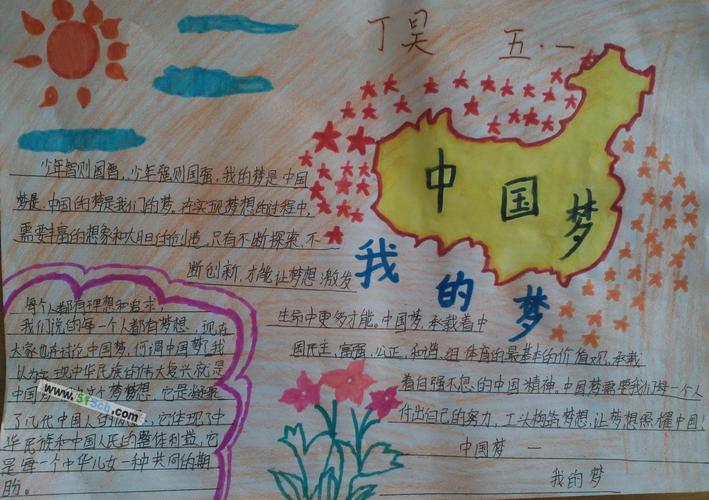 丁昊 五·一
中国梦
我的梦
少年智则国智，少年强则国强，我的梦是中国
梦是，中国的梦是我们的梦，在实现梦想的过程中，
需要丰富的想象和大胆的创造，只有不断探索，不
断创新，才能让梦想激发
生命中更多才能。中国梦，承载着中
国民主，富强，公正，和谐，的最基本的价值观，承载
着自强不息的中国精神。中国梦需要我们每一个人
付出自己的努力，构筑梦想，让梦想照耀中国！
中国梦 一
我的梦
每个人都有理想和追求
我们说的每一个人都有梦想，现在
大家也在讨论中国梦，何谓中国梦？我
以为实现中华民族的伟大复兴就是
中国梦想，它是凝聚
了几代中国人的，它体现了中
华民族和中国人民的整体利益，它
是每一个中华儿女一种共同的期
盼。
www.51Sch.com